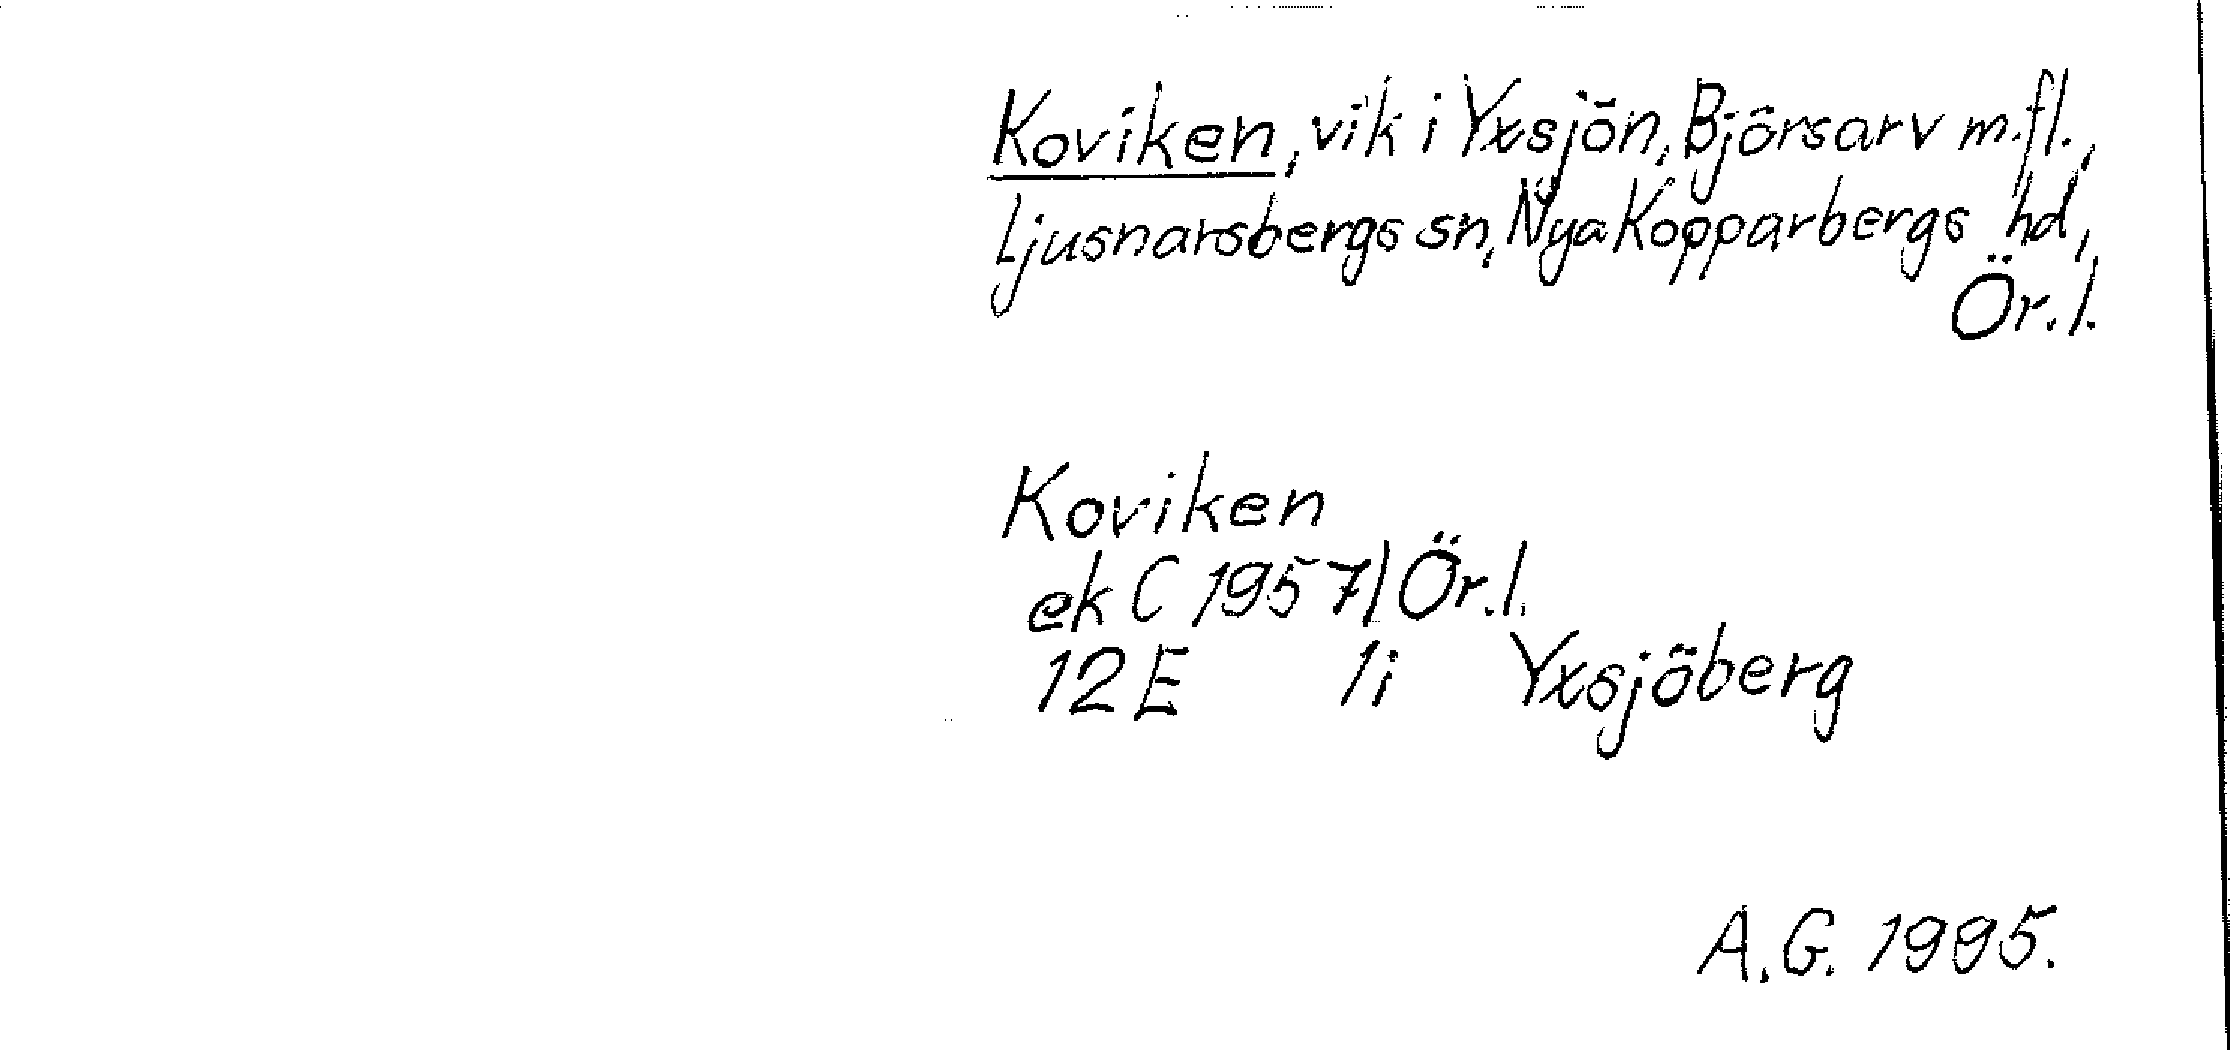 Koviken, vik i Yxsjön, Björsarv m.fl.,
Ljusnarsbergs sn, Nya Kopparbergs hd,
Ör.l.
Koviken
ek C 1957/Ör.l.
12E 1i Yxsjöberg
A.G. 1995.